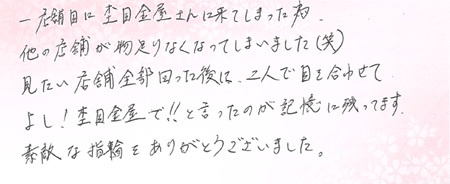 一店舗目に杢目金屋さんに来てしまった為、
他の店舗が物足りなくなってしまいました(笑)
見たい店舗全部回った後は、2人で目を合わせて
よし!杢目金屋で!!と言ったのが記憶に残ってます。
素敵な指輪をありがとうございました。